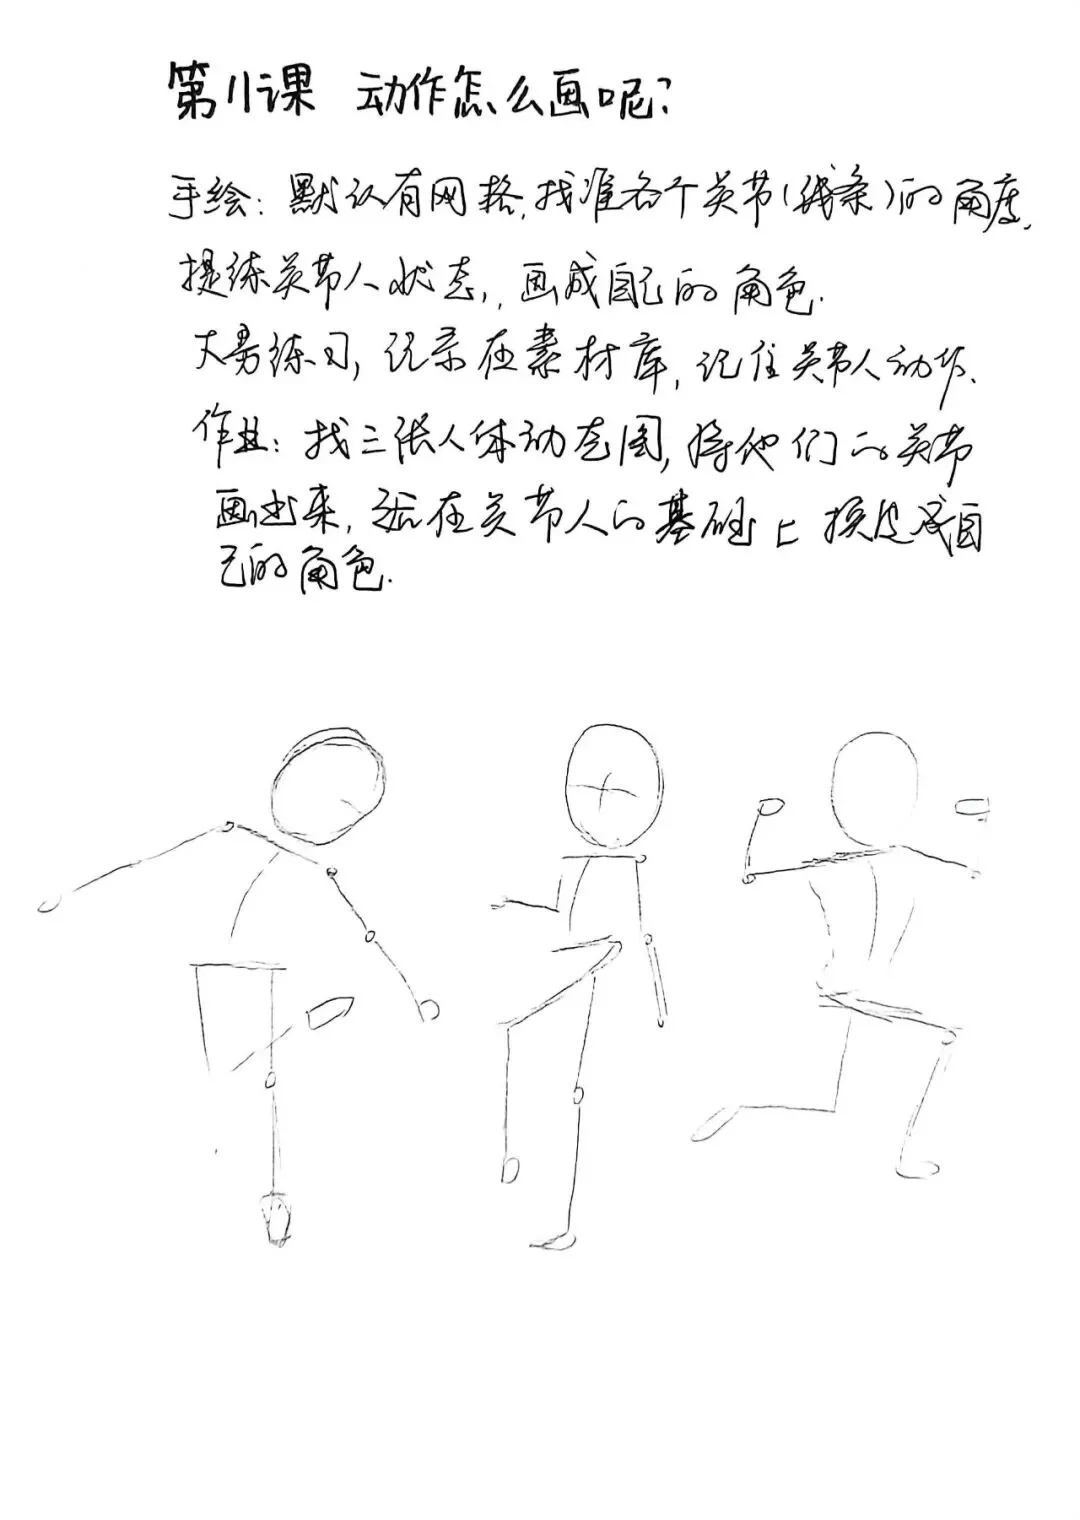 第11课 动作怎么画呢?
手绘: 默认有网格,找准各个关节(线条)的角度,
提练关节人状态,,画成自己的角色.
大量练习,记录在素材库,记住关节人动作.
作业: 找三张人体动态图,将他们的关节
画出来,在关节人的基础上换皮成自
己的角色.